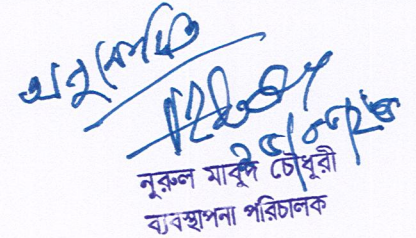 অনুমোদিত
নুরুল মাবুদ চৌধুরী
ব্যবস্থাপনা পরিচালক